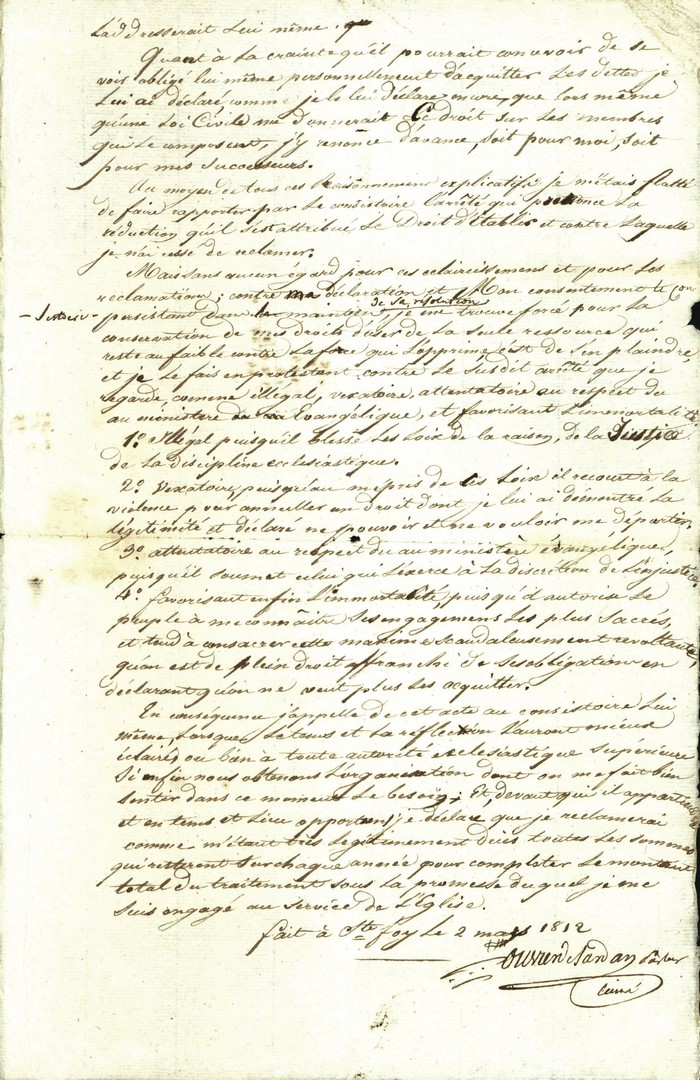 L'addresserait Lui même.
Quant à La crainte qu'il pourrait concevoir de se
voir obligé lui même personnellement d'acquitter Les dettes, je
Lui ai déclaré comme je le lui déclare encore, que lors même
qu'une Loi Civile me donnerait Ce droit sur Les membres
qui Le composent, j'y renonce d'avance, soit pour moi, soit
pour mes successeurs.
Au moyen de tous ces Raisonnemens explicatifs je m'étais flatté
de faire rapporter par Le consistoire L'arrêté qui prononce La
réduction qu'il s'est attribué Le Droit d'établir et contre Laquelle
je n'ai cessé de reclamer.
Mais sans aucun égard pour ces eclaircissemens et pour Les
reclamations, contre ma déclaration et Mon consentement le Con
- sistoire - persistant dans le maintien de sa résolution, je me trouve forcé pour La
conservation de mes droits d'user de La seule ressource qui
reste au faible contre La force qui L'opprime c'est de s'en plaindre,
et je Le fais en protestant contre Le susdit arrêté que je
regarde comme illégal, vexatoire, attentatoire au respect du
au ministère Evangélique, et favorisant L'immortalité
1º Illégal puisqu'il blesse Les Loix de la raison, de La Justice
de La discipline ecclesiastique.
2º Vexatoire, puisqu'au mepris de ces Loix il recourt à La
violence pour annuller un droit dont je lui ai démontré La
légitimité et déclaré ne pouvoir et ne vouloir me départir.
3º attentatoire au respect du au ministère évangélique,
puisqu'il soumet celui qui L'exerce à La discrétion de L'injuste.
4º favorisant enfin L'immoralité, puisqu'il autorise Le
peuple à meconnaitre Ses engagemens Les plus Sacrés,
et tend à consacrer cette maxime scandaleusement revoltante
qu'on est de plein droit affranchi de Ses obligations en
déclarant qu'on ne veut plus Les acquitter.
En conséquence j'appelle de cet acte au consistoire Lui
même, Lorsque Le tems et La réflection L'auront mieux
éclairé, ou bien à toute autorité ecclesiastique Supérieure
Si enfin nous obtenons L'organisation dont on me fait bien
sentir dans ce moment Le besoin; Et, devant qui il appartiendra
et en tems et Lieu opportun, je déclare que je reclamerai
comme m'étant très Legitimement dues toutes Les sommes
qui resteront sur chaque année pour completer Le montant
total du traitement sous La promesse duquel je me
suis engagé au service de L'Eglise.
fait à Ste foy Le 2 mars 1812
ainé